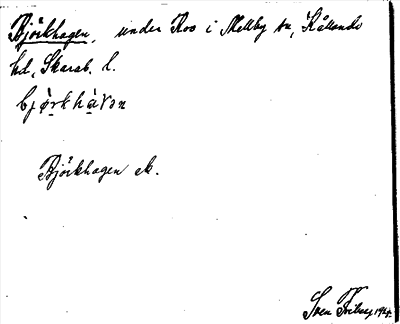 Björkhagen, under Roo i Mellby sn, Kållands
hd, Skarab. l.
bjö̀rkhàvən
Björkhagen ek.
Sven Friberg 1924.